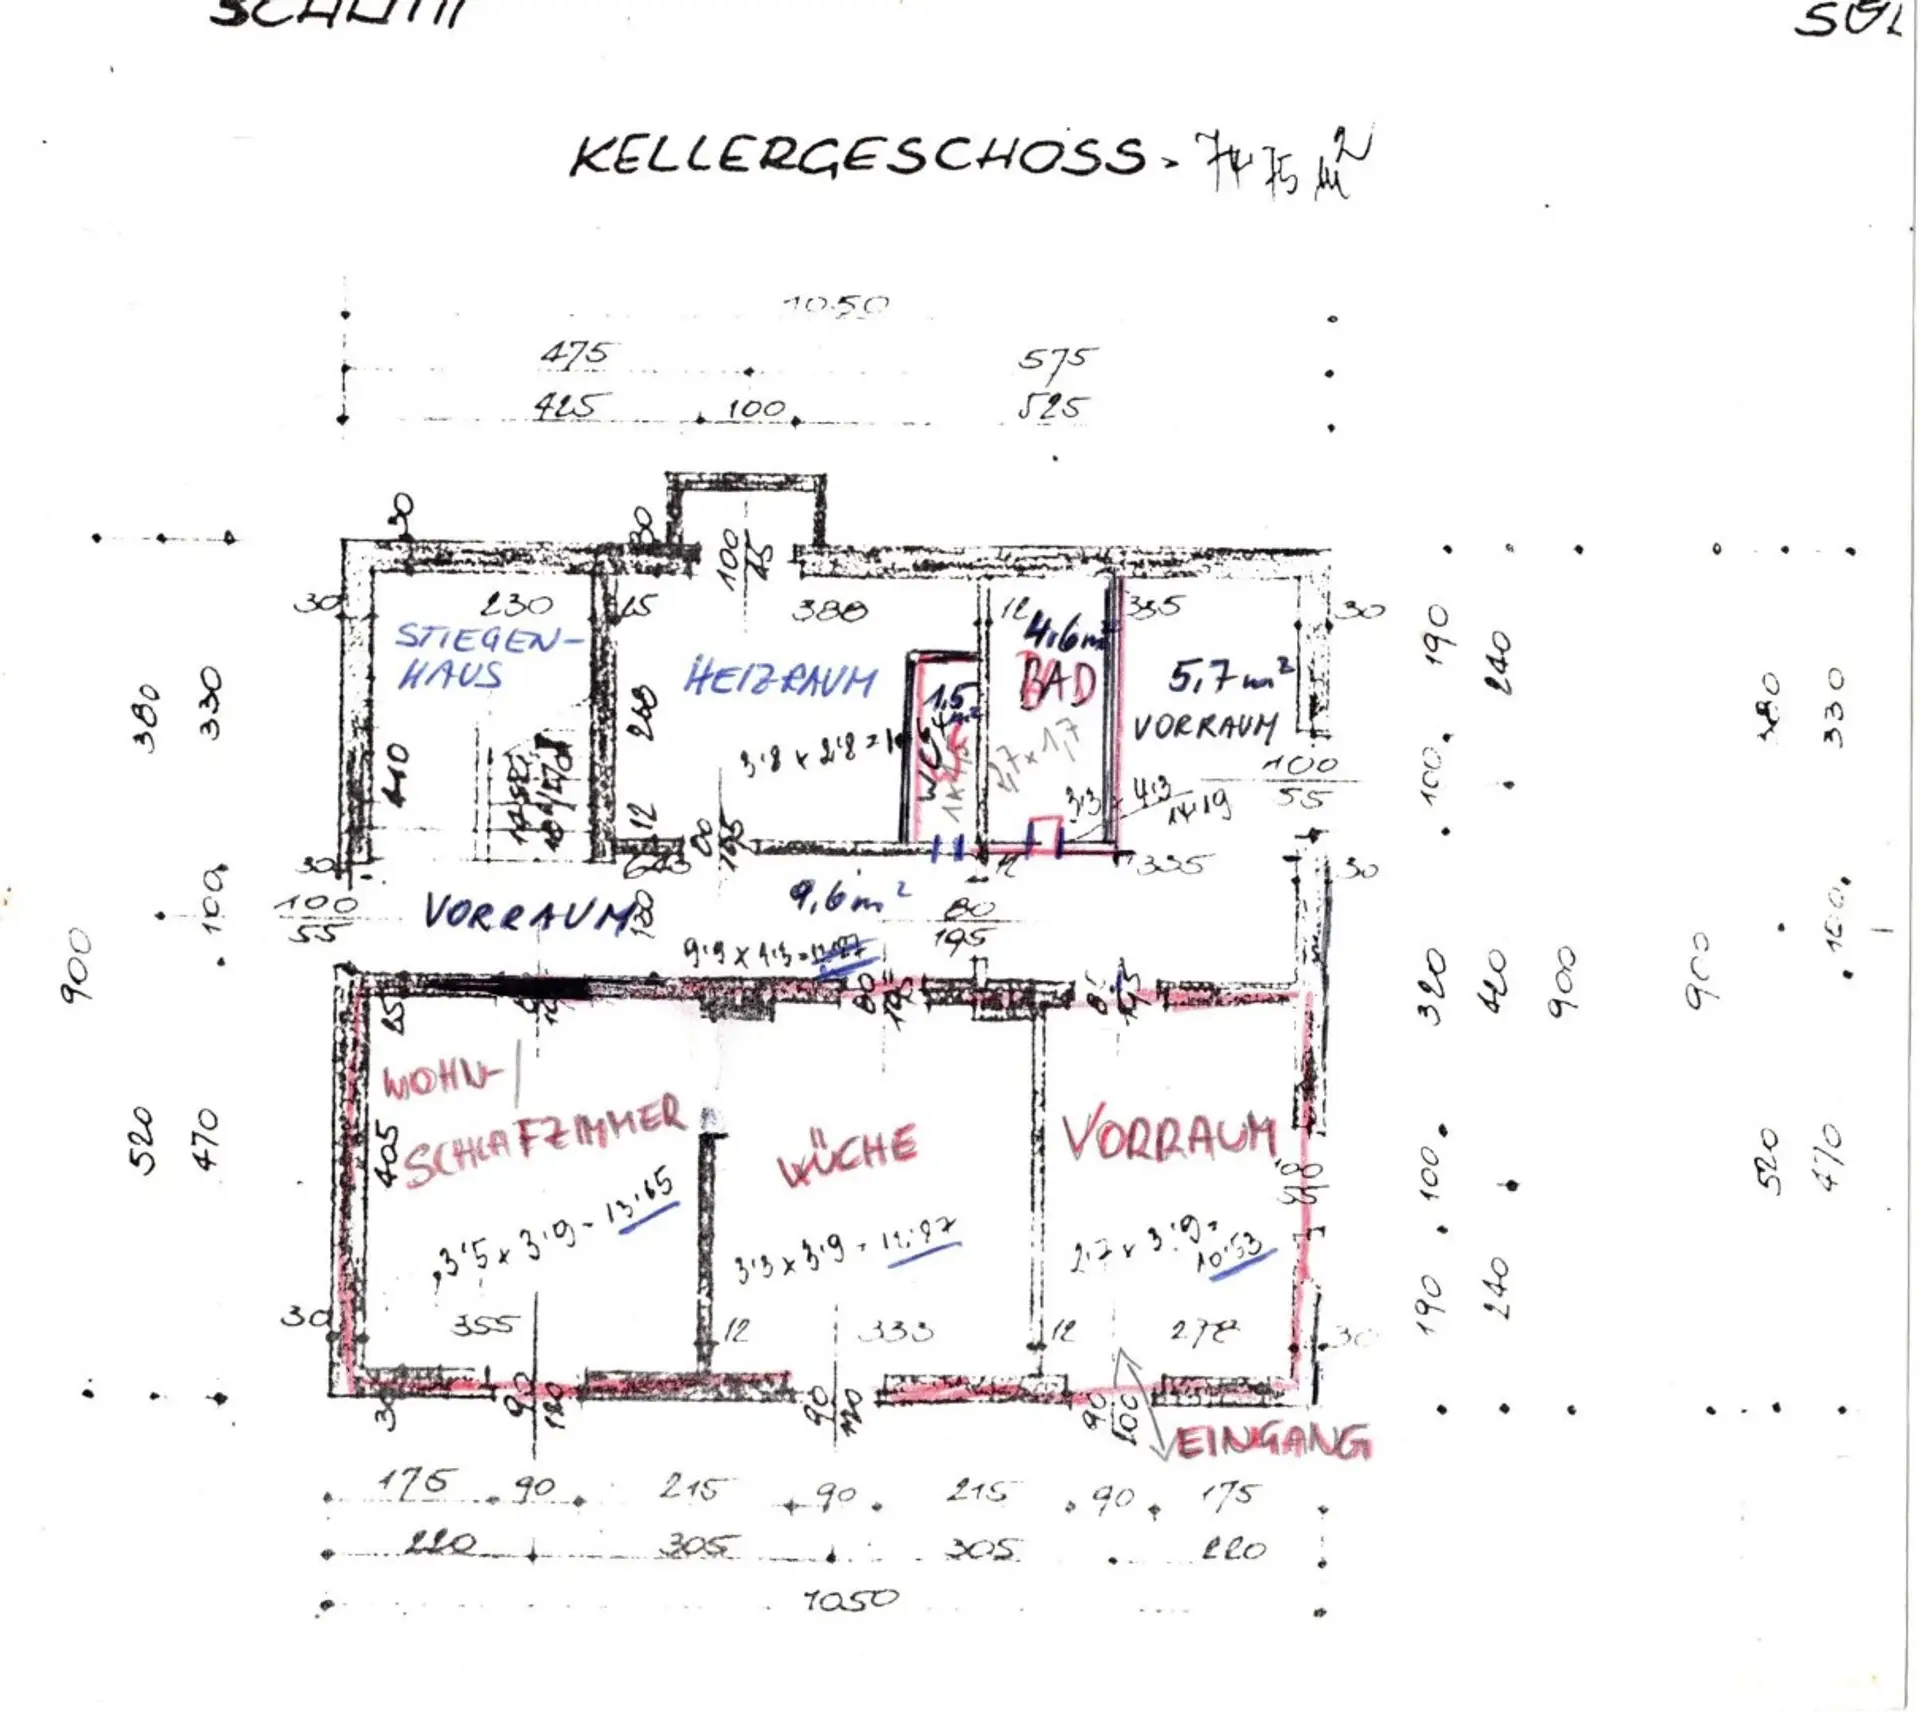 KELLERGESCHOSS. 74,75 m²
1050
475 575
425 100 525
30 30
100
30 230 25 388 12 335 30
STIEGEN-
HAUS
HEIZRAUM
4,6 m²
BAD
5,7 m²
VORRAUM
1,5
m²
WC
268
3'8 x 2'8 =
2,7 x 1,7
110
100
55
3'3 x 4'3
14'19
12
80
195
30 12 335 30
100
55
VORRAUM
130
9,6 m²
80
195
9'9 x 1'3 =
25
80
WOHN-/
SCHLAFZIMMER
KÜCHE
VORRAUM
405
3'5 x 3'9 = 13'65
3'3 x 3'9 = 12'87
2'7 x 3'9 =
10'53
30 355 12 333 12 278 30
30
90
120
90
120
90
200
EINGANG
175 90 215 90 215 90 175
220 305 305 220
1050
380 330
100
900
520 470
190 240
100
320 420 900
100
190 240
380 330
900
520 470